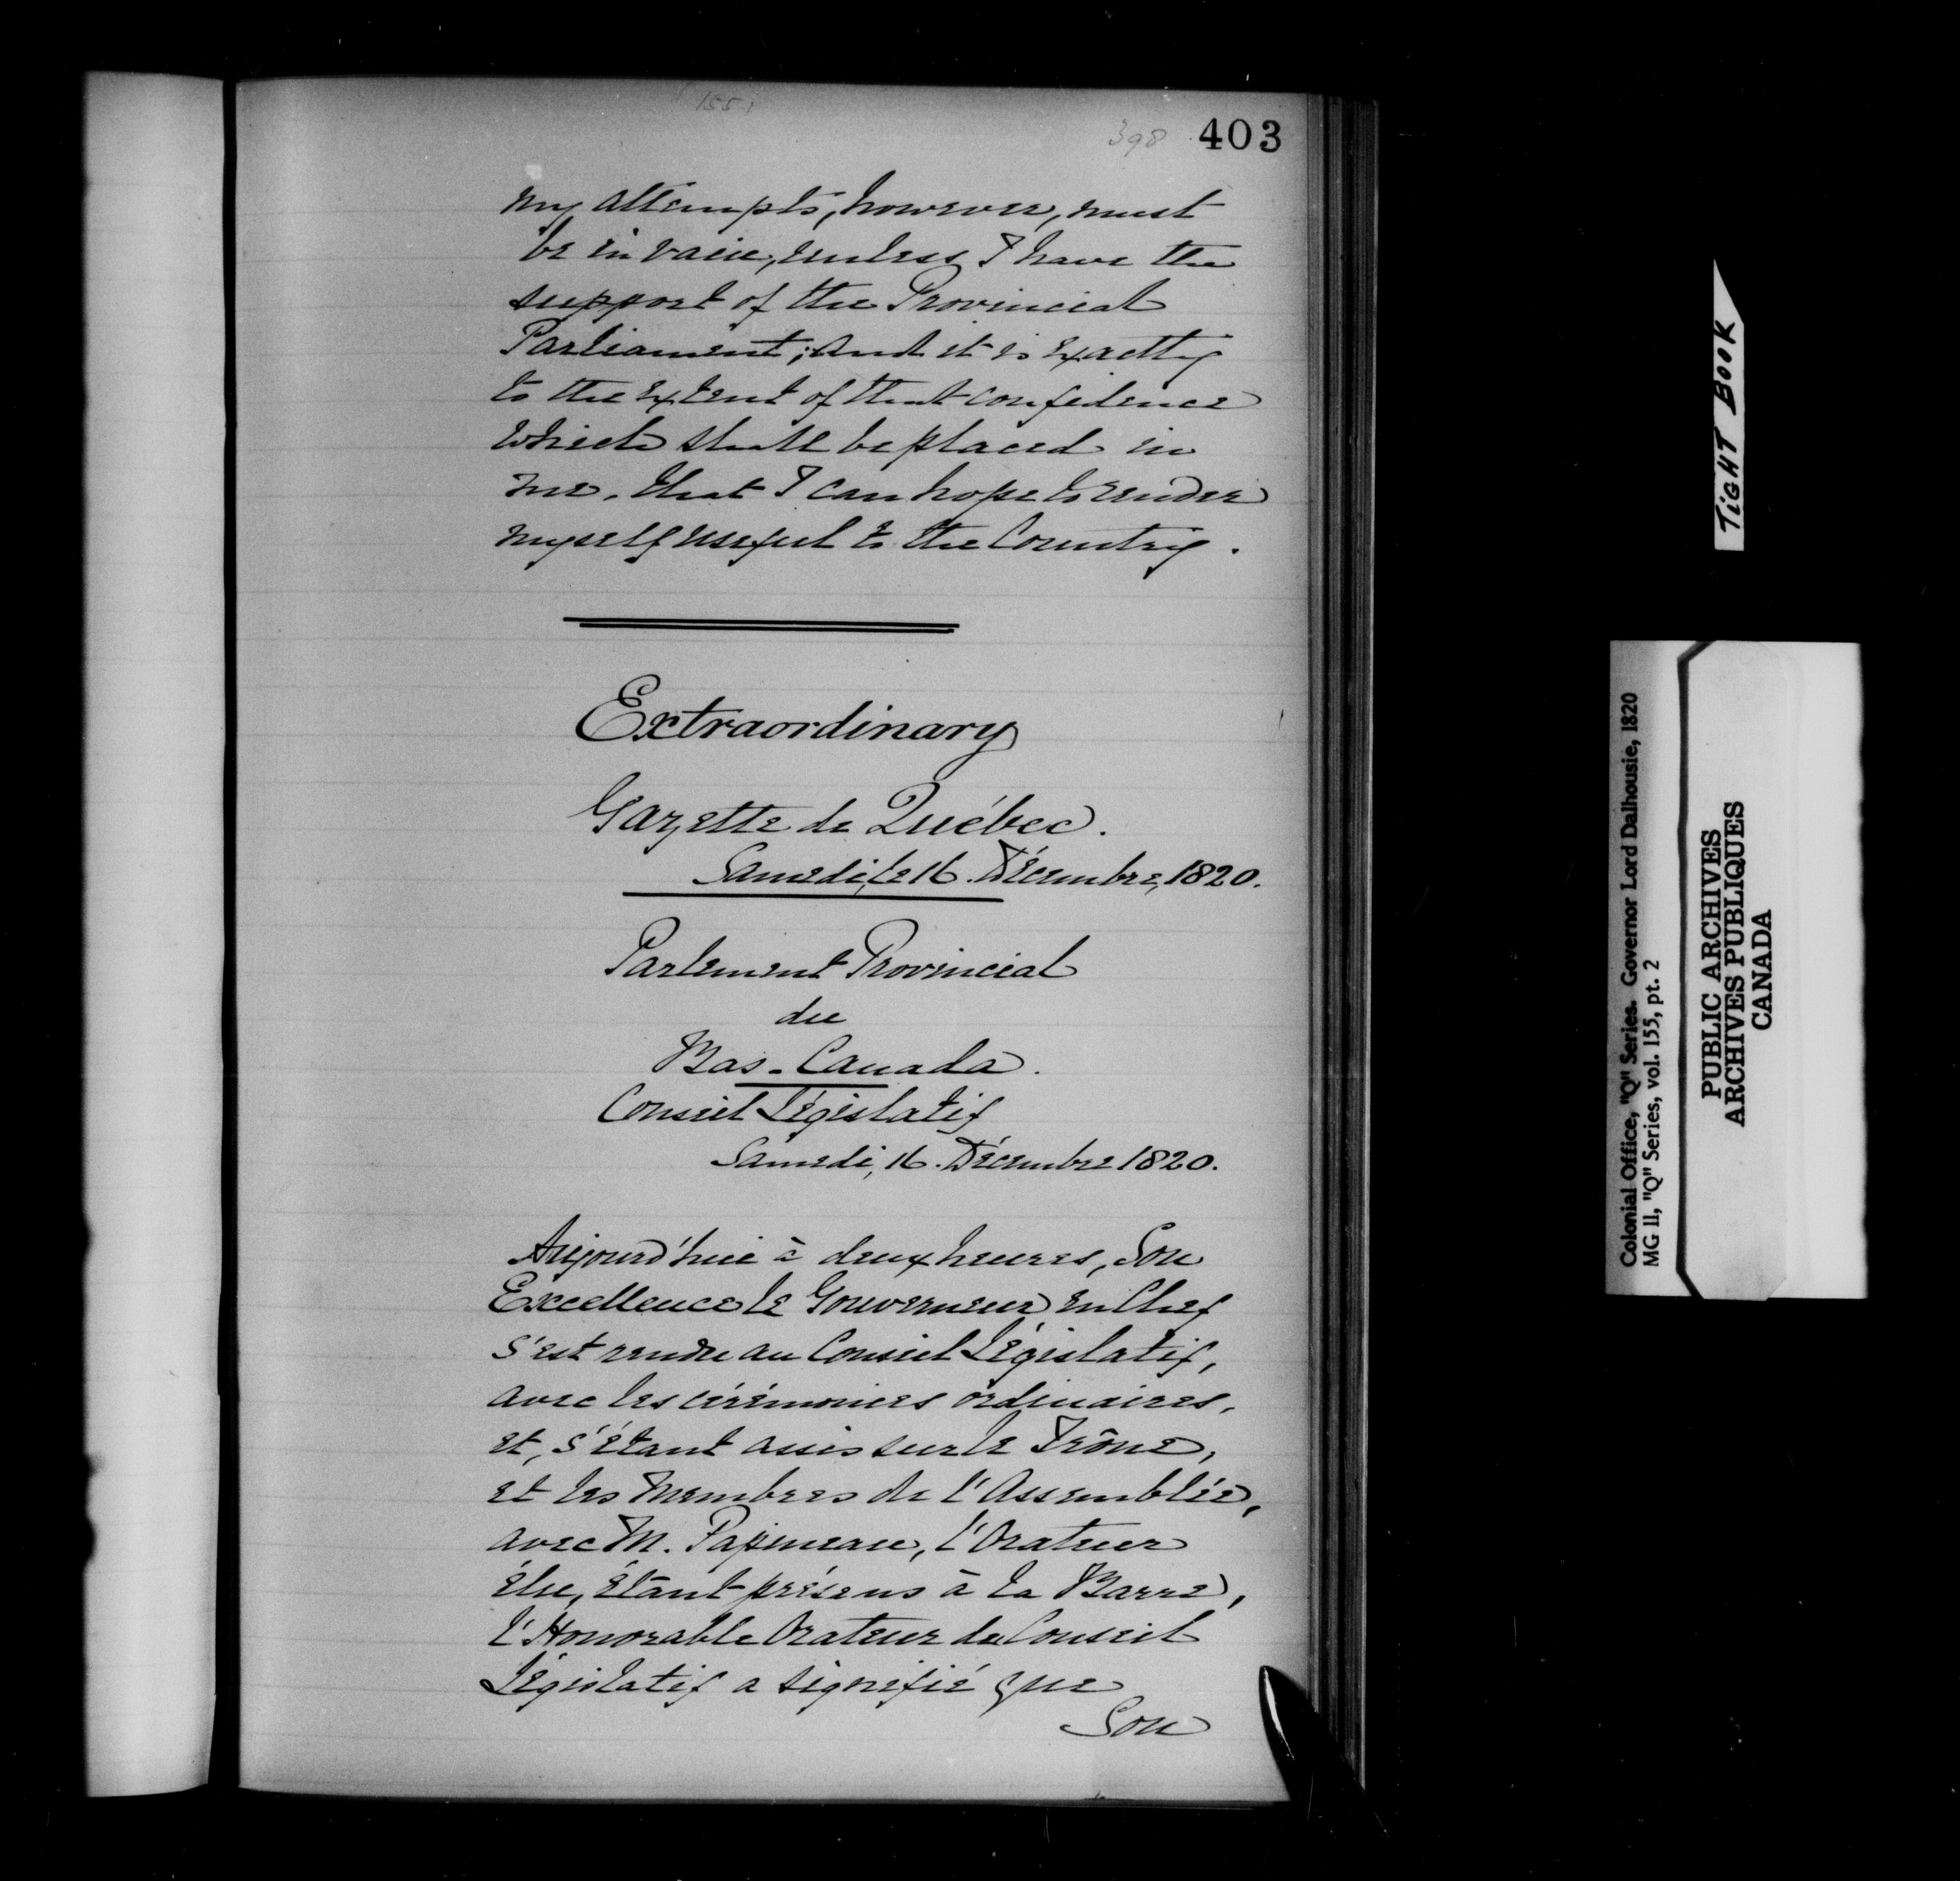 (155)
398 403
my attempts, however, must
be in vain, unless I have the
support of the Provincial
Parliament; and it is exactly
to the extent of that confidence
which shall be placed in
me, that I can hope to render
myself useful to the Country.
Extraordinary
Gazette de Québec.
Samedi, le 16. Décembre, 1820.
Parlement Provincial
du
Bas-Canada.
Conseil Législatif
Samedi, 16. Décembre 1820.
Aujourd'hui à deux heures, Son
Excellence le Gouverneur en Chef
s'est rendu au Conseil Législatif,
avec les cérémonies ordinaires,
et, s'étant assis sur le Trône,
et les Membres de l'Assemblée,
avec M. Papineau, l'Orateur
élu, étant présens à la Barre,
l'Honorable Orateur du Conseil
Législatif a signifié que
Son
TIGHT BOOK
Colonial Office, "Q" Series. Governor Lord Dalhousie, 1820
MG 11, "Q" Series, vol. 155, pt. 2
PUBLIC ARCHIVES
ARCHIVES PUBLIQUES
CANADA